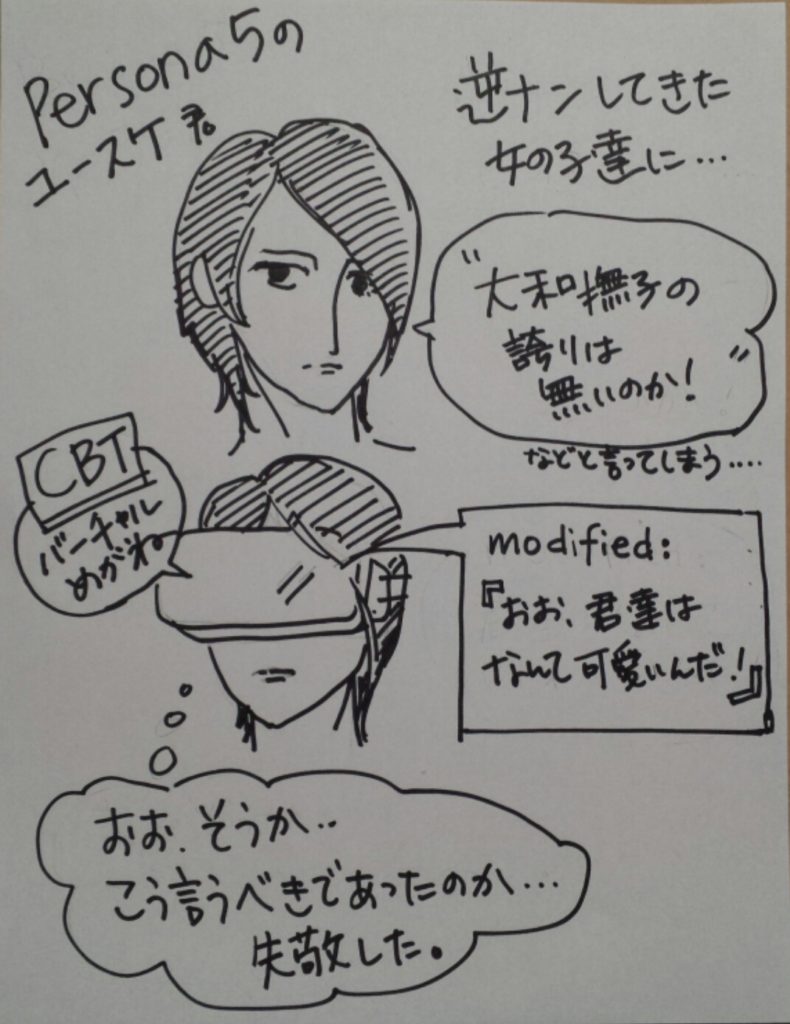 Persona5の
ユースケ君。
逆ナンしてきた
女の子達に…
"大和撫子の
誇りは
無いのか!"
などと言ってしまう....
CBT
バーチャル
めがね
modified:
『おお、君達は
なんて可愛いんだ!』
おお、そうか..
こう言うべきであったのか…
失敬した。